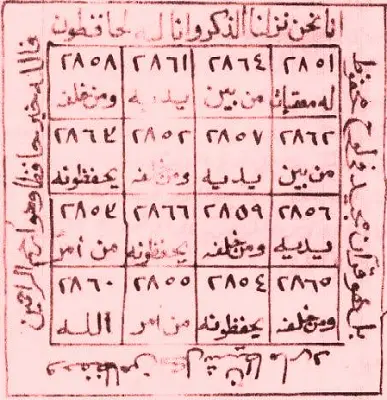 انا نحن نزلنا الذكر وانا له لحافظون
٢٨٥١ ٢٨٦٤ ٢٨٦١ ٢٨٥٨
له معقبات من بين يديه ومن خلفه
٢٨٦٢ ٢٨٥٧ ٢٨٥٢ ٢٨٦٣
من بين يديه ومن خلفه يحفظونه
٢٨٥٦ ٢٨٥٩ ٢٨٦٦ ٢٨٥٣
يديه ومن خلفه يحفظونه من امر
٢٨٦٥ ٢٨٥٤ ٢٨٥٥ ٢٨٦٠
ومن خلفه يحفظونه من امر الله
بل هو قرآن مجيد في لوح محفوظ
وحفظا من كل شيطان مارد
فالله خير حافظا وهو ارحم الراحمين